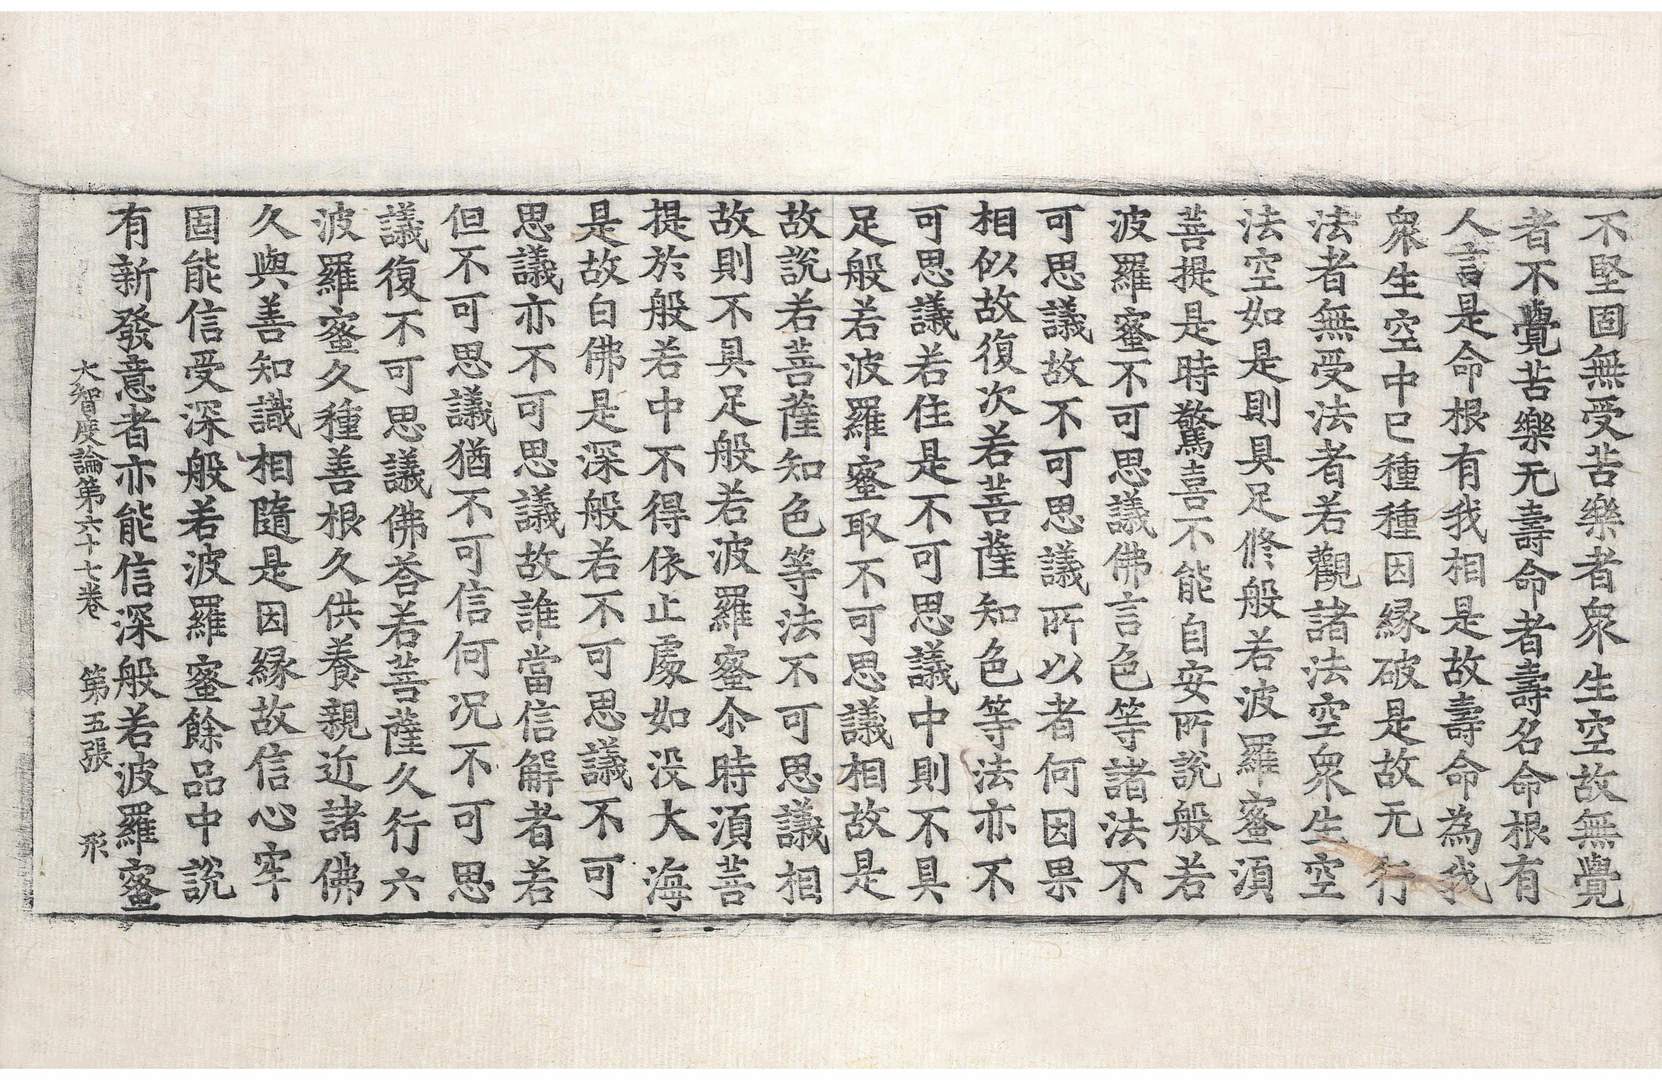 不堅固無受苦樂者衆生空故無覺
者不覺苦樂无壽命者壽名命根有
人言是命根有我相是故壽命為我
衆生空中已種種因緣破是故无行
法者無受法者若觀諸法空衆生空
法空如是則具足修般若波羅蜜須
菩提是時驚喜不能自安所說般若
波羅蜜不可思議佛言色等諸法不
可思議故不可思議所以者何因果
相似故復次若菩薩知色等法亦不
可思議若住是不可思議中則不具
足般若波羅蜜取不可思議相故是
故說若菩薩知色等法不可思議相
故則不具足般若波羅蜜尒時須菩
提於般若中不得依止處如没大海
是故白佛是深般若不可思議不可
思議亦不可思議故誰當信解者若
但不可思議猶不可信何况不可思
議復不可思議佛荅若菩薩久行六
波羅蜜久種善根久供養親近諸佛
久與善知識相隨是因緣故信心牢
固能信受深般若波羅蜜餘品中說
有新發意者亦能信深般若波羅蜜
大智度論第六十七卷 第五張 形